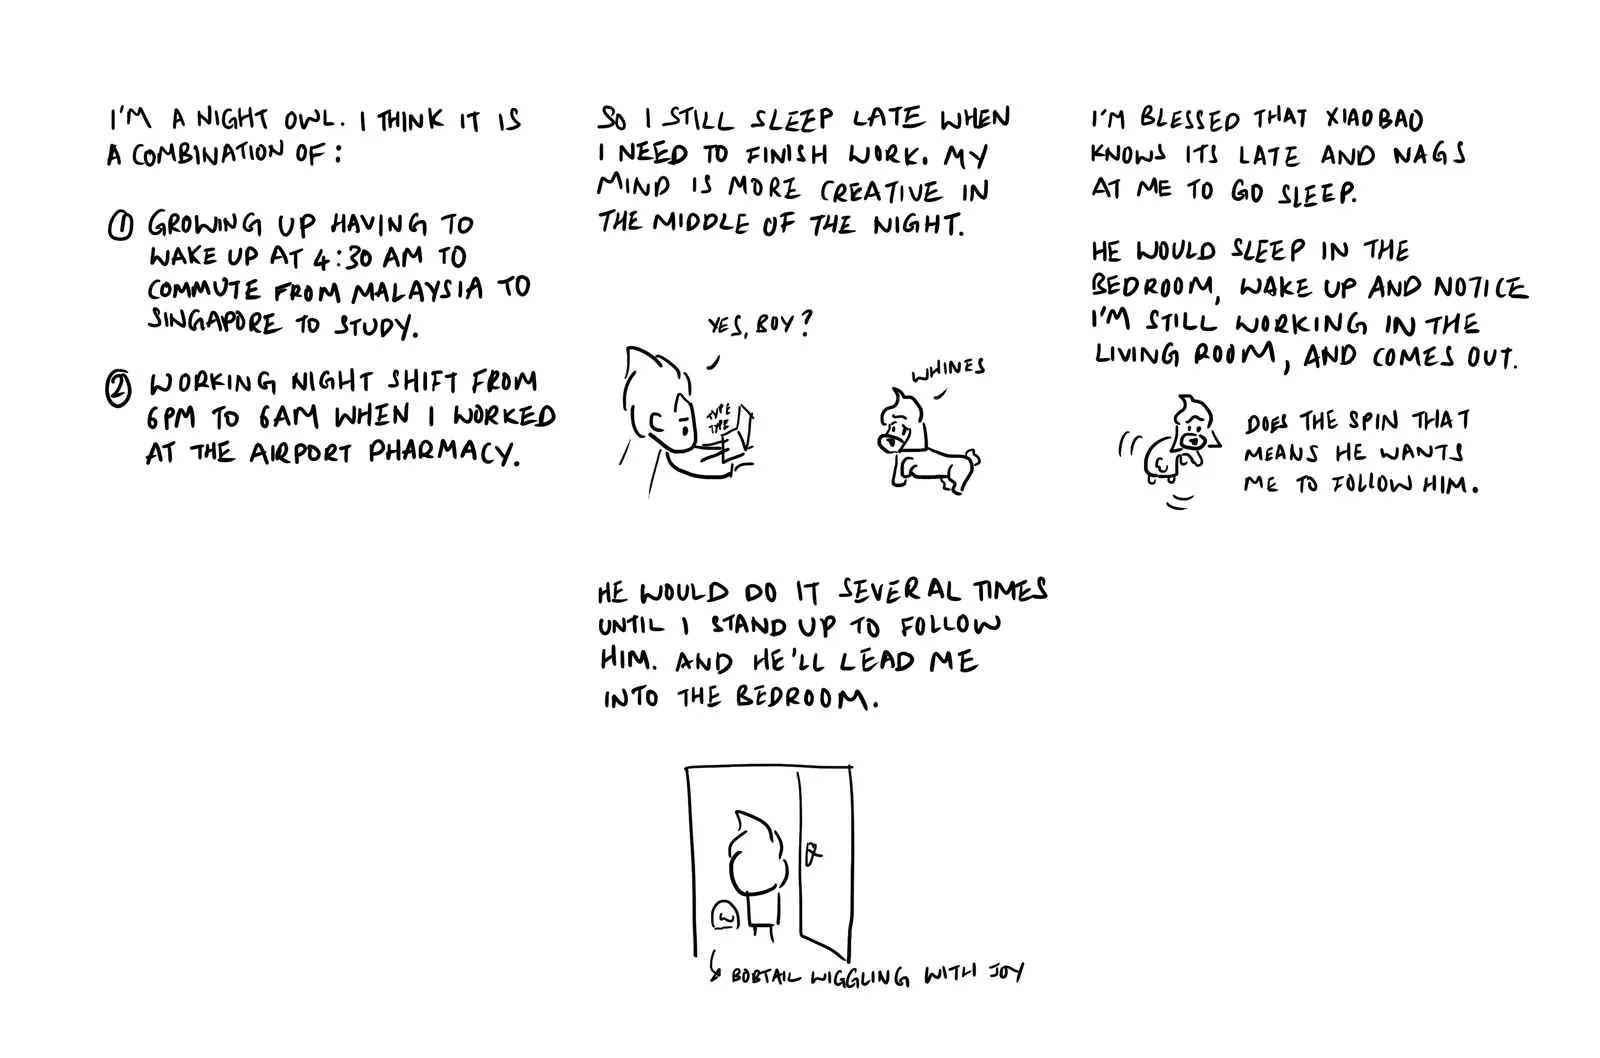 I'M A NIGHT OWL. I THINK IT IS
A COMBINATION OF:
① GROWING UP HAVING TO
WAKE UP AT 4:30 AM TO
COMMUTE FROM MALAYSIA TO
SINGAPORE TO STUDY.
② WORKING NIGHT SHIFT FROM
6PM TO 6AM WHEN I WORKED
AT THE AIRPORT PHARMACY.
SO I STILL SLEEP LATE WHEN
I NEED TO FINISH WORK. MY
MIND IS MORE CREATIVE IN
THE MIDDLE OF THE NIGHT.
YES, BOY?
TYPE
TYPE
WHINES
I'M BLESSED THAT XIAOBAO
KNOWS ITS LATE AND NAGS
AT ME TO GO SLEEP.
HE WOULD SLEEP IN THE
BEDROOM, WAKE UP AND NOTICE
I'M STILL WORKING IN THE
LIVING ROOM, AND COMES OUT.
DOES THE SPIN THAT
MEANS HE WANTS
ME TO FOLLOW HIM.
HE WOULD DO IT SEVERAL TIMES
UNTIL I STAND UP TO FOLLOW
HIM. AND HE'LL LEAD ME
INTO THE BEDROOM.
BOBTAIL WIGGLING WITH JOY